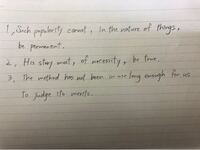 1, Such popularity cannot, in the nature of things,
be permanent.
2, His story must, of necessity, be true.
3, The method has not been in use long enough for us
to judge its merits.